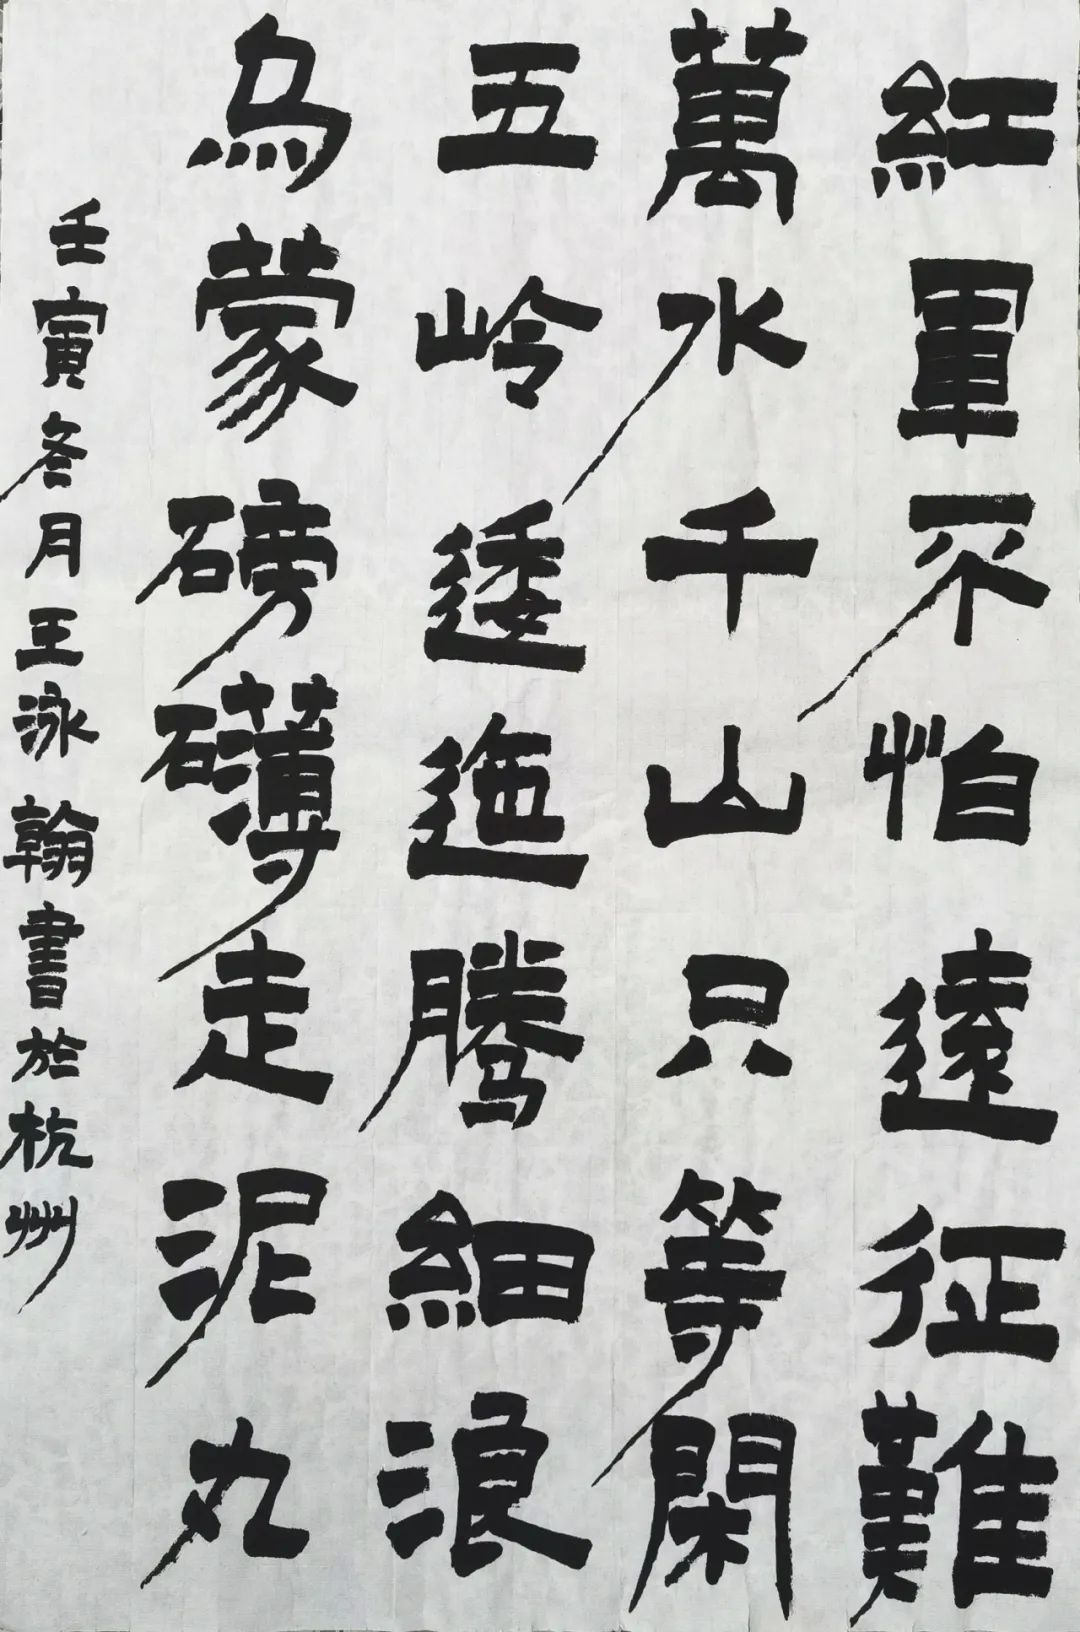 紅軍不怕遠征難
萬水千山只等閑
五岭逶迤騰細浪
烏蒙磅礴走泥丸
壬寅冬月王泳翰書於杭州